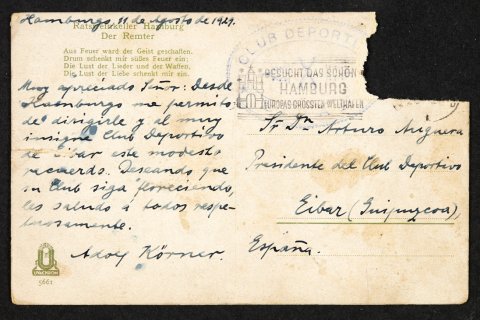 Hamburgo, 11 de Agosto de 1929.
Ratsweinkeller Hamburg
Der Remter
Aus Feuer ward der Geist geschaffen,
Drum schenkt mir süßes Feuer ein;
Die Lust der Lieder und der Waffen,
Die Lust der Liebe schenkt mir ein.
Muy apreciado Señor: Desde
Hamburgo me permito
de dirigirle y al muy
insigne Club Deportivo
de Eibar este modesto
recuerdo. Deseando que
su Club siga floreciendo,
les saludo a todos respe-
tuosamente.
Adolf Körner.
UVACHROM
5661
CLUB DEPORTI
BESUCHT DAS SCHÖN
HAMBURG
EUROPAS GRÖSSTEN WELTHAFEN
Sr. Dn. Arturo
Presidente del Club Deportivo
Eibar (Guipuzcoa),
España.